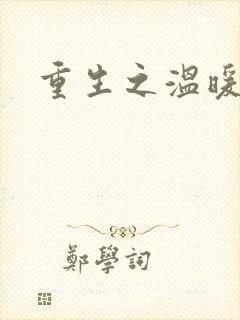 重生之溫暖
鄭學詞